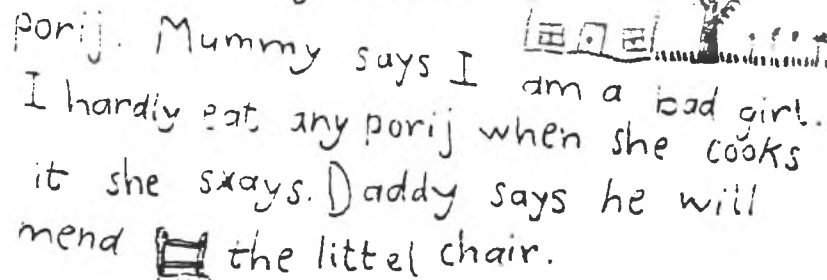 porij. Mummy says I am a bad girl.
I hardly eat any porij when she cooks
it she sxays. Daddy says he will
mend the littel chair.